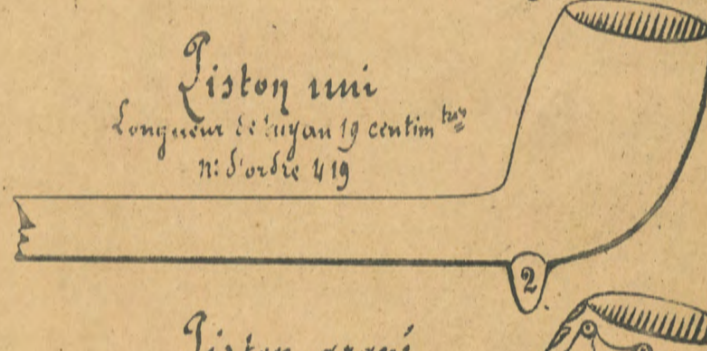 Piston uni
Longueur de tuyau 19 centim tres
N: d'ordre 419
2
Piston gravé